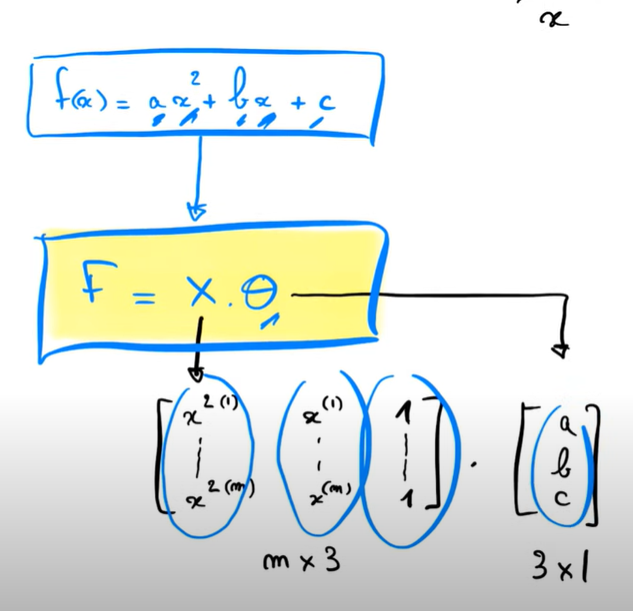 x
f(x) = ax² + bx + c
F = X . θ
x²⁽¹⁾ x⁽¹⁾ 1 a
⋮ ⋮ ⋮ . b
x²⁽ᵐ⁾ x⁽ᵐ⁾ 1 c
m x 3 3 x 1